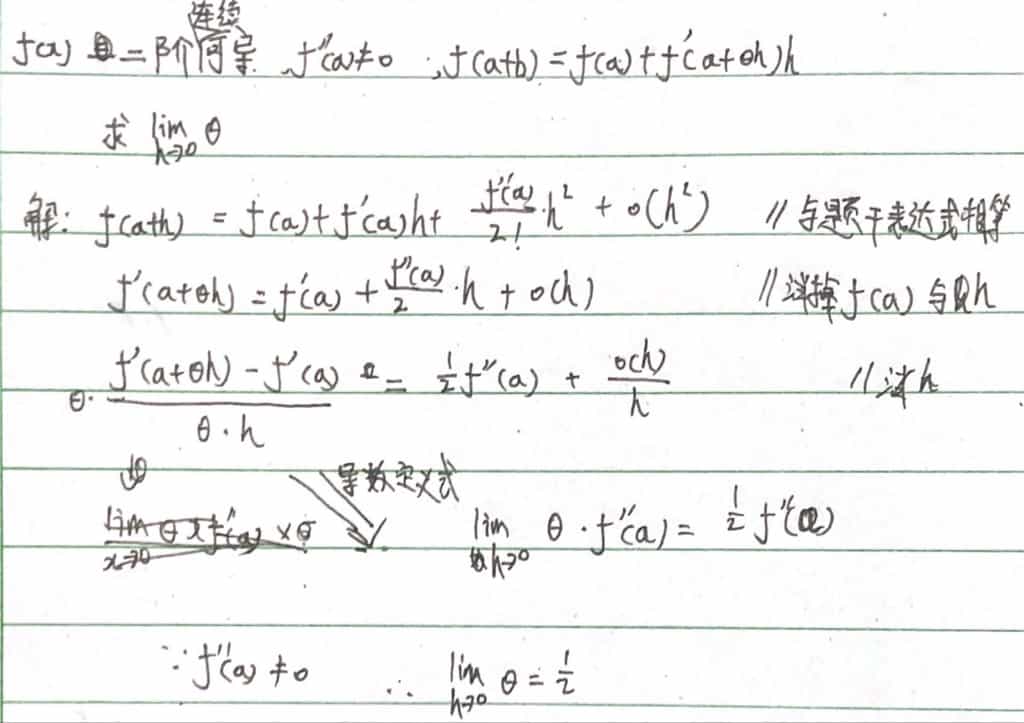 连续
f(x) 二阶可导, f''(a)≠0, f(a+b)=f(a)+f'(a+θh)h
求 lim h→0 θ
解: f(a+h) = f(a)+f'(a)h+ f''(a)/2! ·h² + o(h²) //与题干表达式相等
f'(a+θh) = f'(a) + f''(a)/2 ·h + o(h) //消掉f(a)与取h
θ· (f'(a+θh) - f'(a))/(θ·h) = 1/2 f''(a) + o(h)/h //消h
导数定义式
lim h→0 θ·f''(a) = 1/2 f''(a)
∵ f''(a)≠0 ∴ lim h→0 θ = 1/2